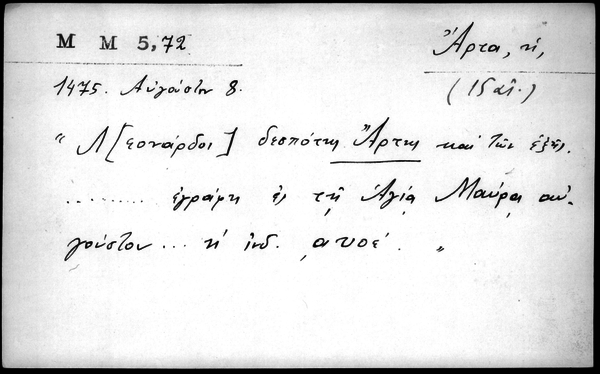 M M 5,72
Ἄρτα, ἡ,
1475. Αὐγούστου 8.
(15 αἰ.)
“ Λ[εονάρδος] δεσπότης Ἄρτης καὶ τῶν ἑξῆς.
......... ἐγράφη ἐν τῇ Ἁγίᾳ Μαύρᾳ αὐ-
γούστου ... η΄ ἰνδ. ,αυοέ. „